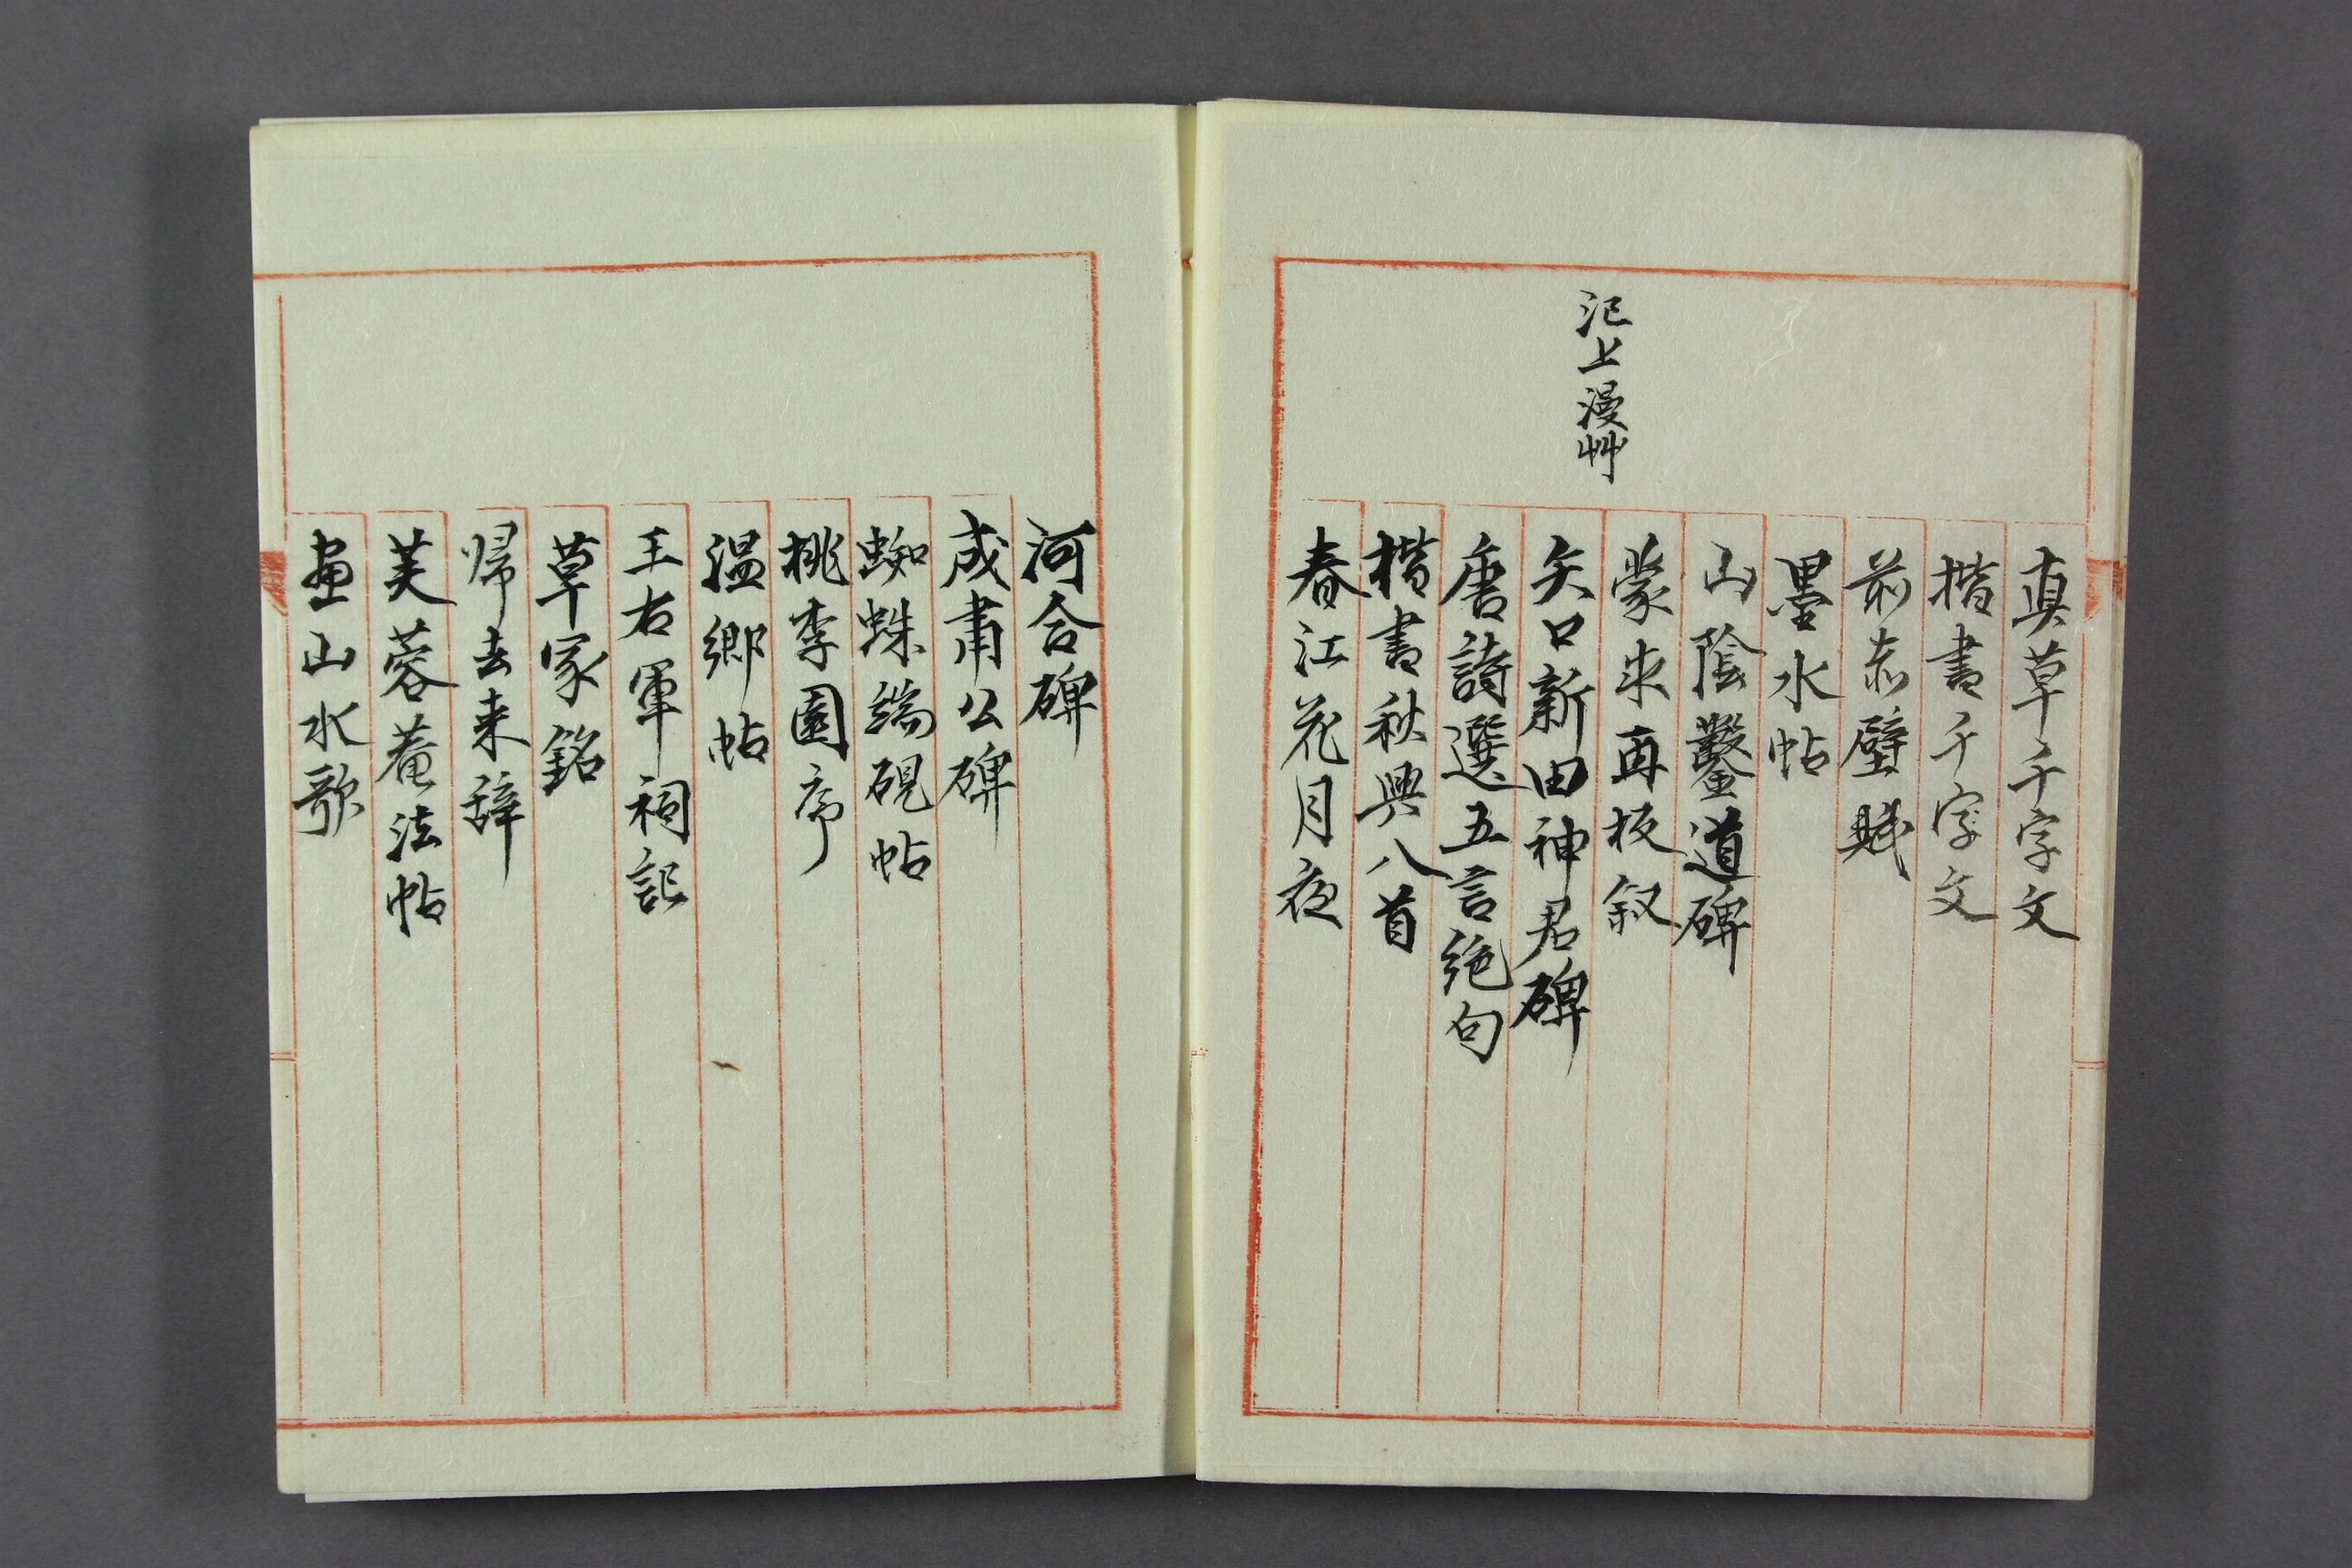 真草千字文
楷書千字文
前赤壁賦
墨水帖
山陰鑿道碑
蒙求再板叙
氾上漫艸
矢口新田神君碑
唐詩選五言絶句
楷書秋興八首
春江花月夜
河合碑
成肅公碑
蜘蛛端硯帖
桃李園序
温郷帖
王右軍祠記
草冢銘
帰去来辞
芙蓉菴法帖
画山水歌